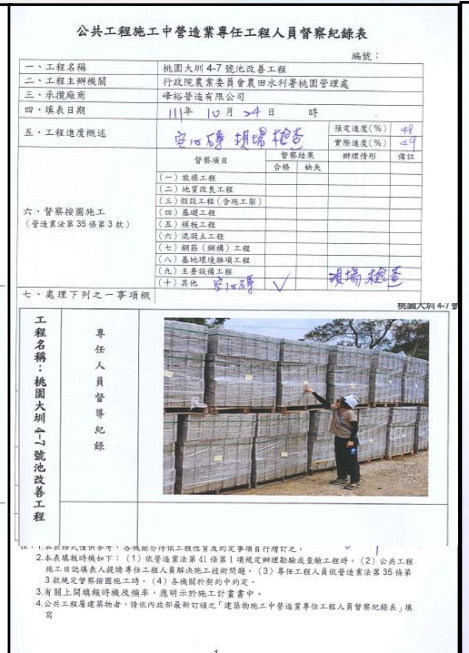 公共工程施工中營造業專任工程人員督察紀錄表
編號：
一、工程名稱 桃園大圳 4-7 號池改善工程
二、工程主辦機關 行政院農業委員會農田水利署桃園管理處
三、承攬廠商 峰裕營造有限公司
四、填表日期 111年 10月 24日 時
五、工程進度概述 空心磚 現場檢查 預定進度(%) 48
實際進度(%) 49
督察項目 督察結果 辦理情形 備註
合格 缺失
六、督察按圖施工
(營造業法第35條第3款)
(一)放樣工程
(二)地質改良工程
(三)假設工程(含施工架)
(四)基礎工程
(五)模板工程
(六)混凝土工程
(七)鋼筋(鋼構)工程
(八)基地環境雜項工程
(九)主要設備工程
(十)其他 空心磚 ✓ 現場檢查
七、處理下列之一事項概
桃園大圳 4-7 號
工程名稱：桃園大圳 4-7 號池改善工程
專任人員督導紀錄
2.本表填報時機如下：(1)依營造業法第41條第1項規定辦理勘驗或查驗工程時。(2)公共工程
施工日誌填表人提請專任工程人員解決施工技術問題。(3)專任工程人員依營造業法第35條第
3款規定督察按圖施工時。(4)各機關於契約中約定。
3.有關上開填報時機及頻率，應明示於施工計畫書中。
4.公共工程屬建築物者，請依內政部最新訂頒之「建築物施工中營造業專任工程人員督察紀錄表」填
寫
1